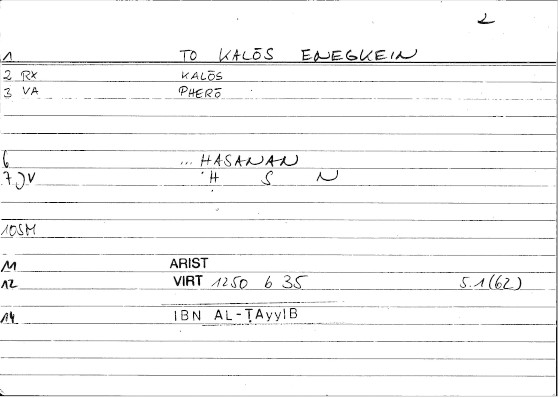 2
1 TO KALŌS ENEGKEIN
2 RX KALŌS
3 VA PHERŌ
6 ... ḤASANAN
7 JV Ḥ S N
10SM
11 ARIST
12 VIRT 1250 b 35 5.1(62)
14 IBN AL-ṬAyyIB